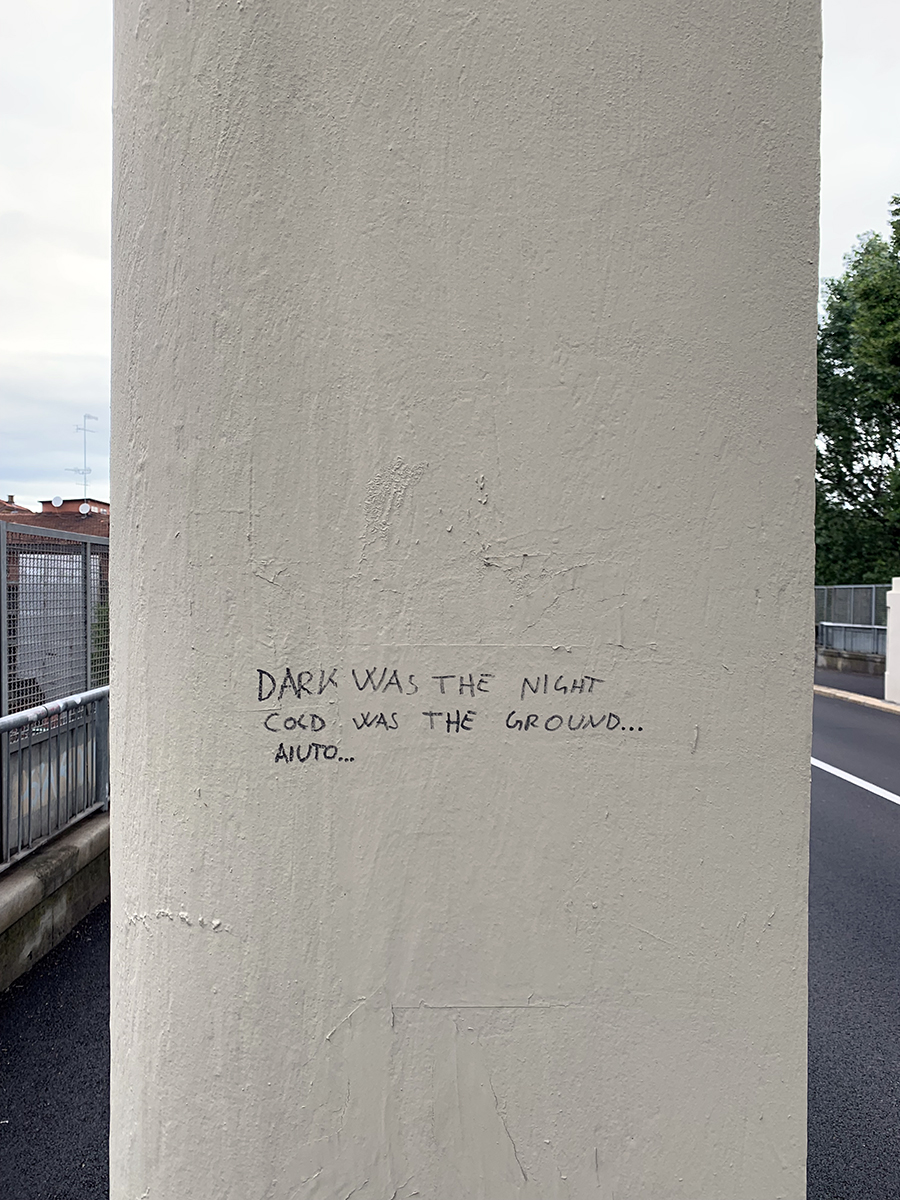 DARK WAS THE NIGHT
COLD WAS THE GROUND...
AIUTO...